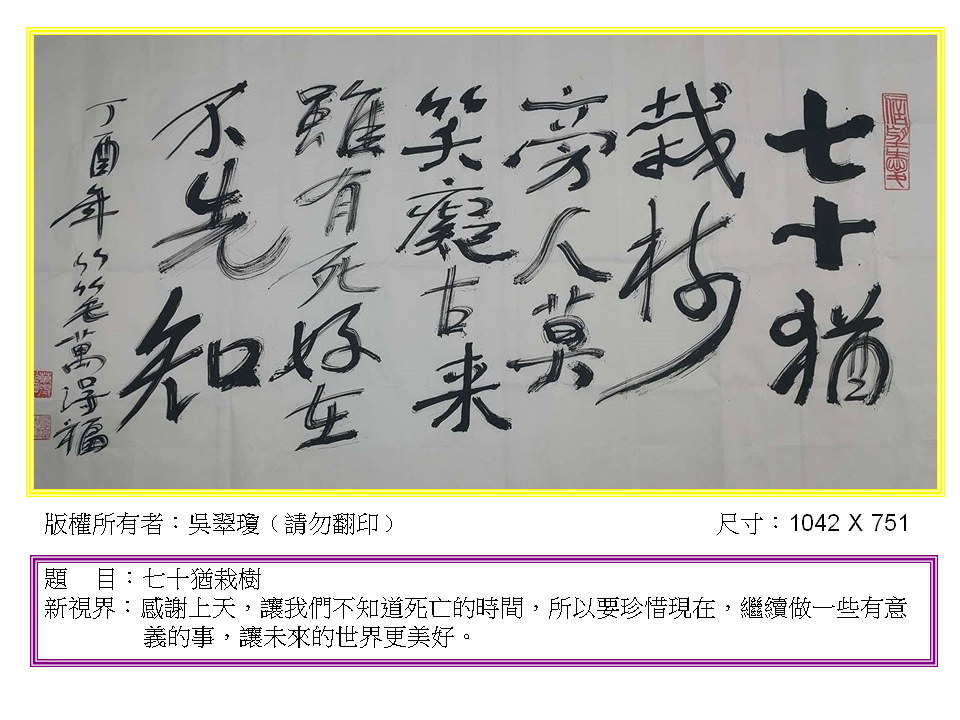 七十猶
栽樹
旁人莫
笑癡古来
雖有死好在
不先知
丁酉年竹笔萬得福
版權所有者：吳翠瓊（請勿翻印）
尺寸：1042 X 751
題　目：七十猶栽樹
新視界：感謝上天，讓我們不知道死亡的時間，所以要珍惜現在，繼續做一些有意
義的事，讓未來的世界更美好。